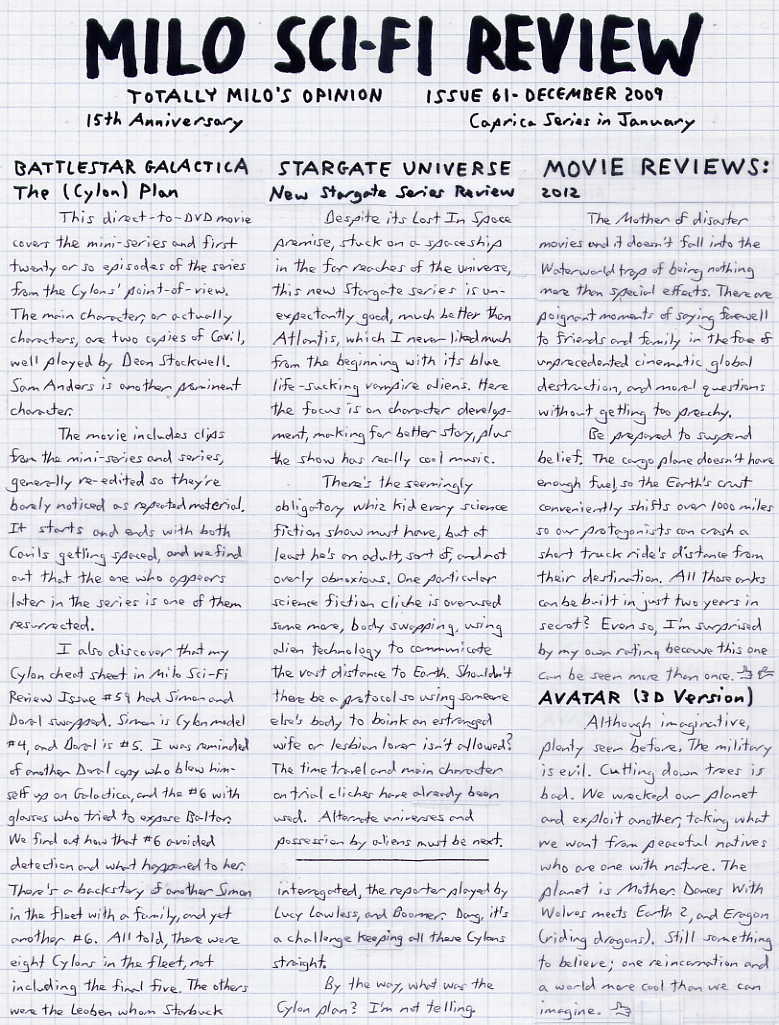 MILO SCI-FI REVIEW
TOTALLY MILO'S OPINION ISSUE 61 - DECEMBER 2009
15th Anniversary Caprica Series in January
BATTLESTAR GALACTICA
The (Cylon) Plan
This direct-to-DVD movie
covers the mini-series and first
twenty or so episodes of the series
from the Cylons' point-of-view.
The main character, or actually
characters, are two copies of Cavil,
well played by Dean Stockwell.
Sam Anders is another prominent
character.
The movie includes clips
from the mini-series and series,
generally re-edited so they're
barely noticed as repeated material.
It starts and ends with both
Cavils getting spaced, and we find
out that the one who appears
later in the series is one of them
resurrected.
I also discover that my
Cylon cheat sheet in Milo Sci-Fi
Review Issue #59 had Simon and
Doral swapped. Simon is Cylon model
#4, and Doral is #5. I was reminded
of another Doral copy who blew him-
self up on Galactica, and the #6 with
glasses who tried to expose Baltar.
We find out how that #6 avoided
detection and what happened to her.
There's a backstory of another Simon
in the fleet with a family, and yet
another #6. All told, there were
eight Cylons in the fleet, not
including the final five. The others
were the Leoben whom Starbuck
STARGATE UNIVERSE
New Stargate Series Review
Despite its Lost In Space
premise, stuck on a spaceship
in the far reaches of the universe,
this new Stargate series is un-
expectantly good, much better than
Atlantis, which I never liked much
from the beginning with its blue
life-sucking vampire aliens. Here
the focus is on character develop-
ment, making for better story, plus
the show has really cool music.
There's the seemingly
obligatory whiz kid every science
fiction show must have, but at
least he's an adult, sort of, and not
overly obnoxious. One particular
science fiction cliche is overused
some more, body swapping, using
alien technology to communicate
the vast distance to Earth. Shouldn't
there be a protocol so using someone
else's body to boink an estranged
wife or lesbian lover isn't allowed?
The time travel and main character
on trial cliches have already been
used. Alternate universes and
possession by aliens must be next.
interrogated, the reporter played by
Lucy Lawless, and Boomer. Dang, it's
a challenge keeping all these Cylons
straight.
By the way, what was the
Cylon plan? I'm not telling.
MOVIE REVIEWS:
2012
The Mother of disaster
movies and it doesn't fall into the
Waterworld trap of being nothing
more than special effects. There are
poignant moments of saying farewell
to friends and family in the face of
unprecedented cinematic global
destruction, and moral questions
without getting too preachy.
Be prepared to suspend
belief. The cargo plane doesn't have
enough fuel, so the Earth's crust
conveniently shifts over 1000 miles
so our protagonists can crash a
short truck ride's distance from
their destination. All those arks
can be built in just two years in
secret? Even so, I'm surprised
by my own rating because this one
can be seen more than once.
AVATAR (3D Version)
Although imaginative,
plenty seen before. The military
is evil. Cutting down trees is
bad. We wrecked our planet
and exploit another, taking what
we want from peaceful natives
who are one with nature. The
planet is Mother. Dances With
Wolves meets Earth 2, and Eragon
(riding dragons). Still something
to believe; one reincarnation and
a world more cool than we can
imagine.